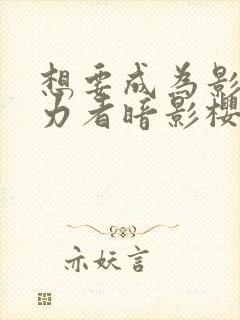 想要成为影
力者暗影樱
亦妖言